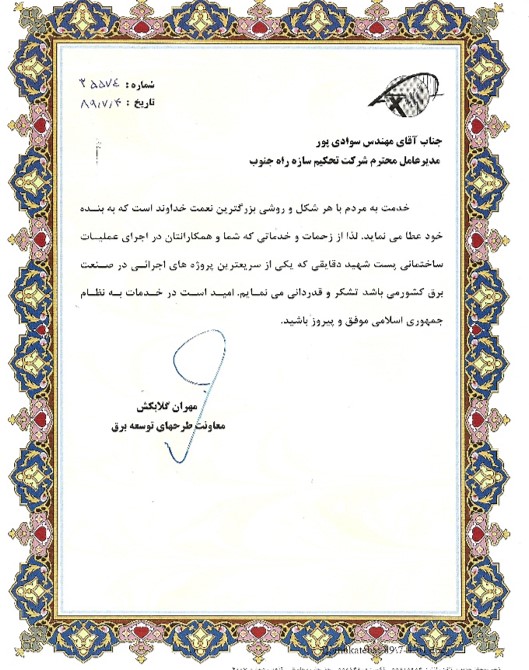 شماره : ۳۵۵۷۴
تاریخ : ۸۹/۷/۴
جناب آقای مهندس سوادی پور
مدیرعامل محترم شرکت تحکیم سازه راه جنوب
خدمت به مردم با هر شکل و روشی بزرگترین نعمت خداوند است که به بنده
خود عطا می نماید. لذا از زحمات و خدماتی که شما و همکارانتان در اجرای عملیات
ساختمانی پست شهید دقایقی که یکی از سریعترین پروژه های اجرائی در صنعت
برق کشورمی باشد تشکر و قدردانی می نمایم. امید است در خدمات به نظام
جمهوری اسلامی موفق و پیروز باشید.
مهران گلابکش
معاونت طرحهای توسعه برق